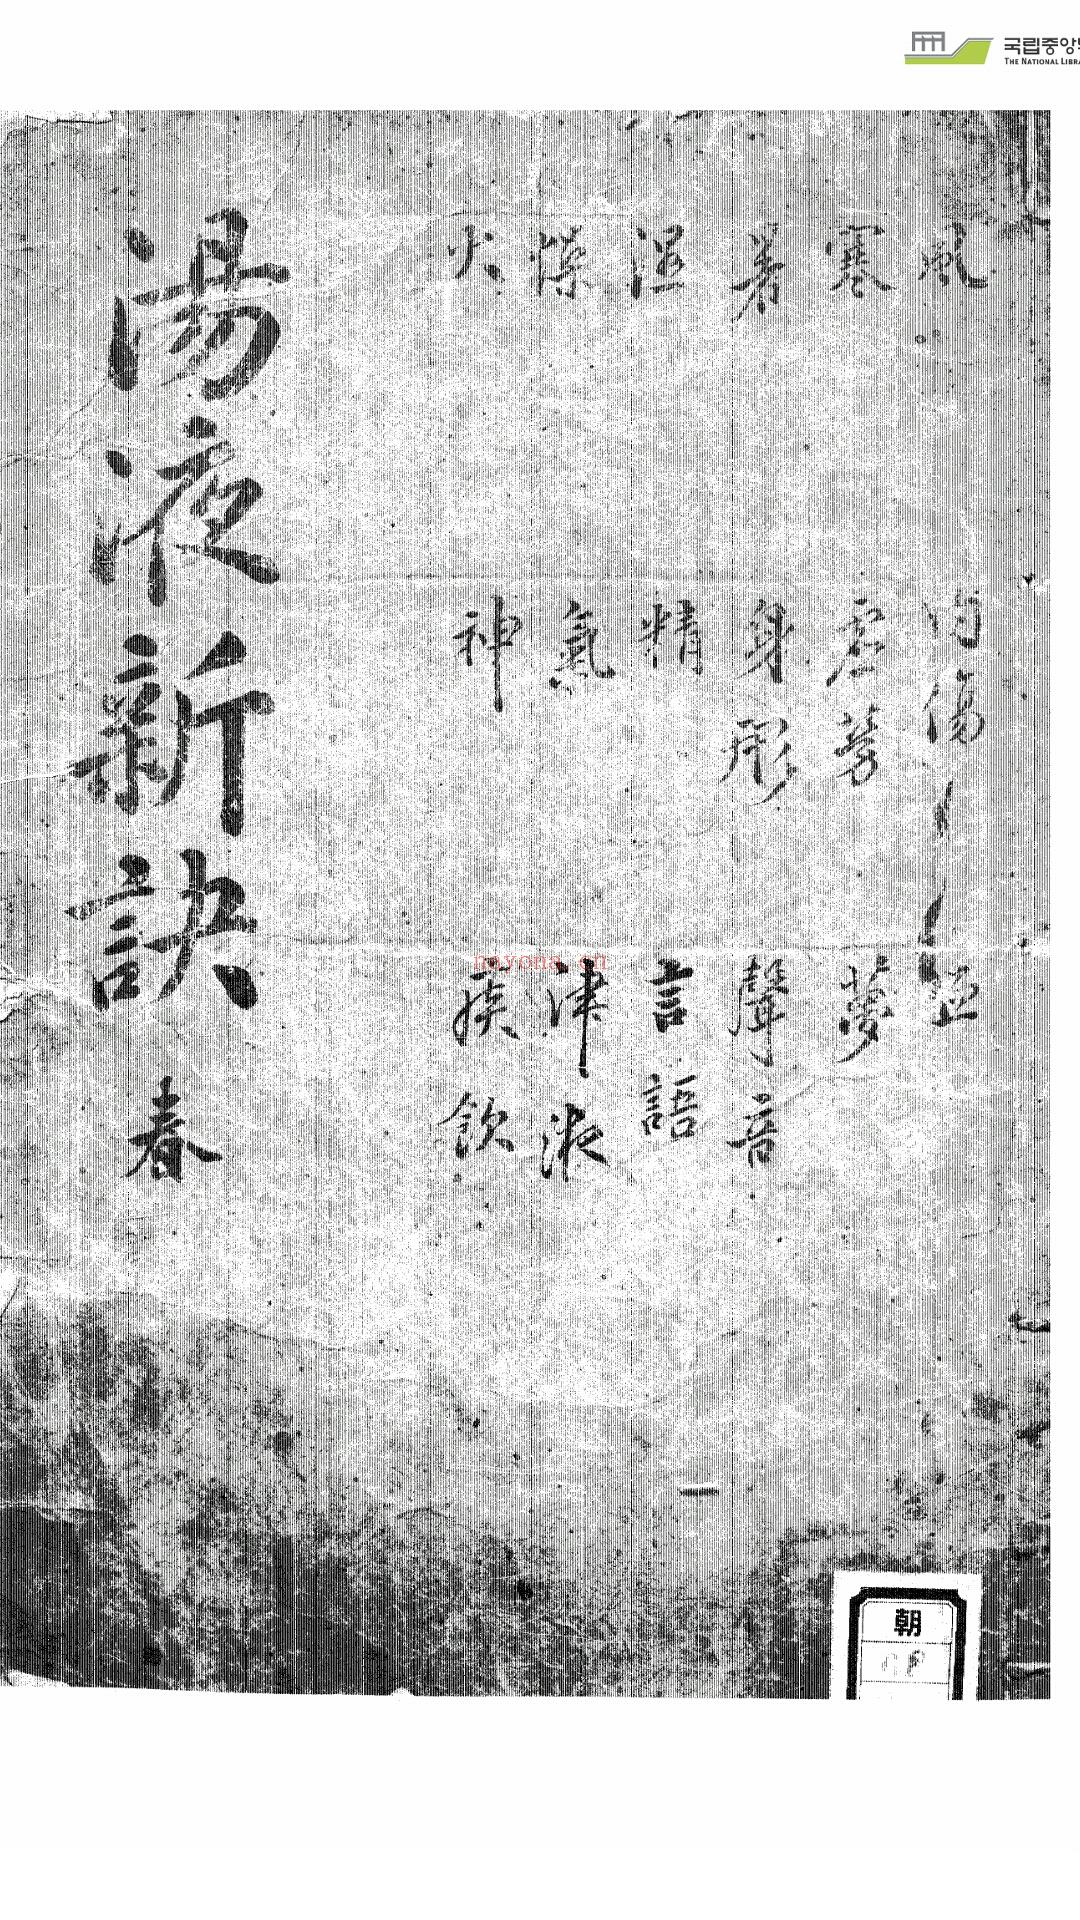 국립중앙
THE NATIONAL LIBRA
風
寒
暑
湿
燥
火
内傷
虛勞
身形
精
氣
神
血
夢
聲音
言語
津液
痰飲
湯液新訣 春
nayona.cn
朝